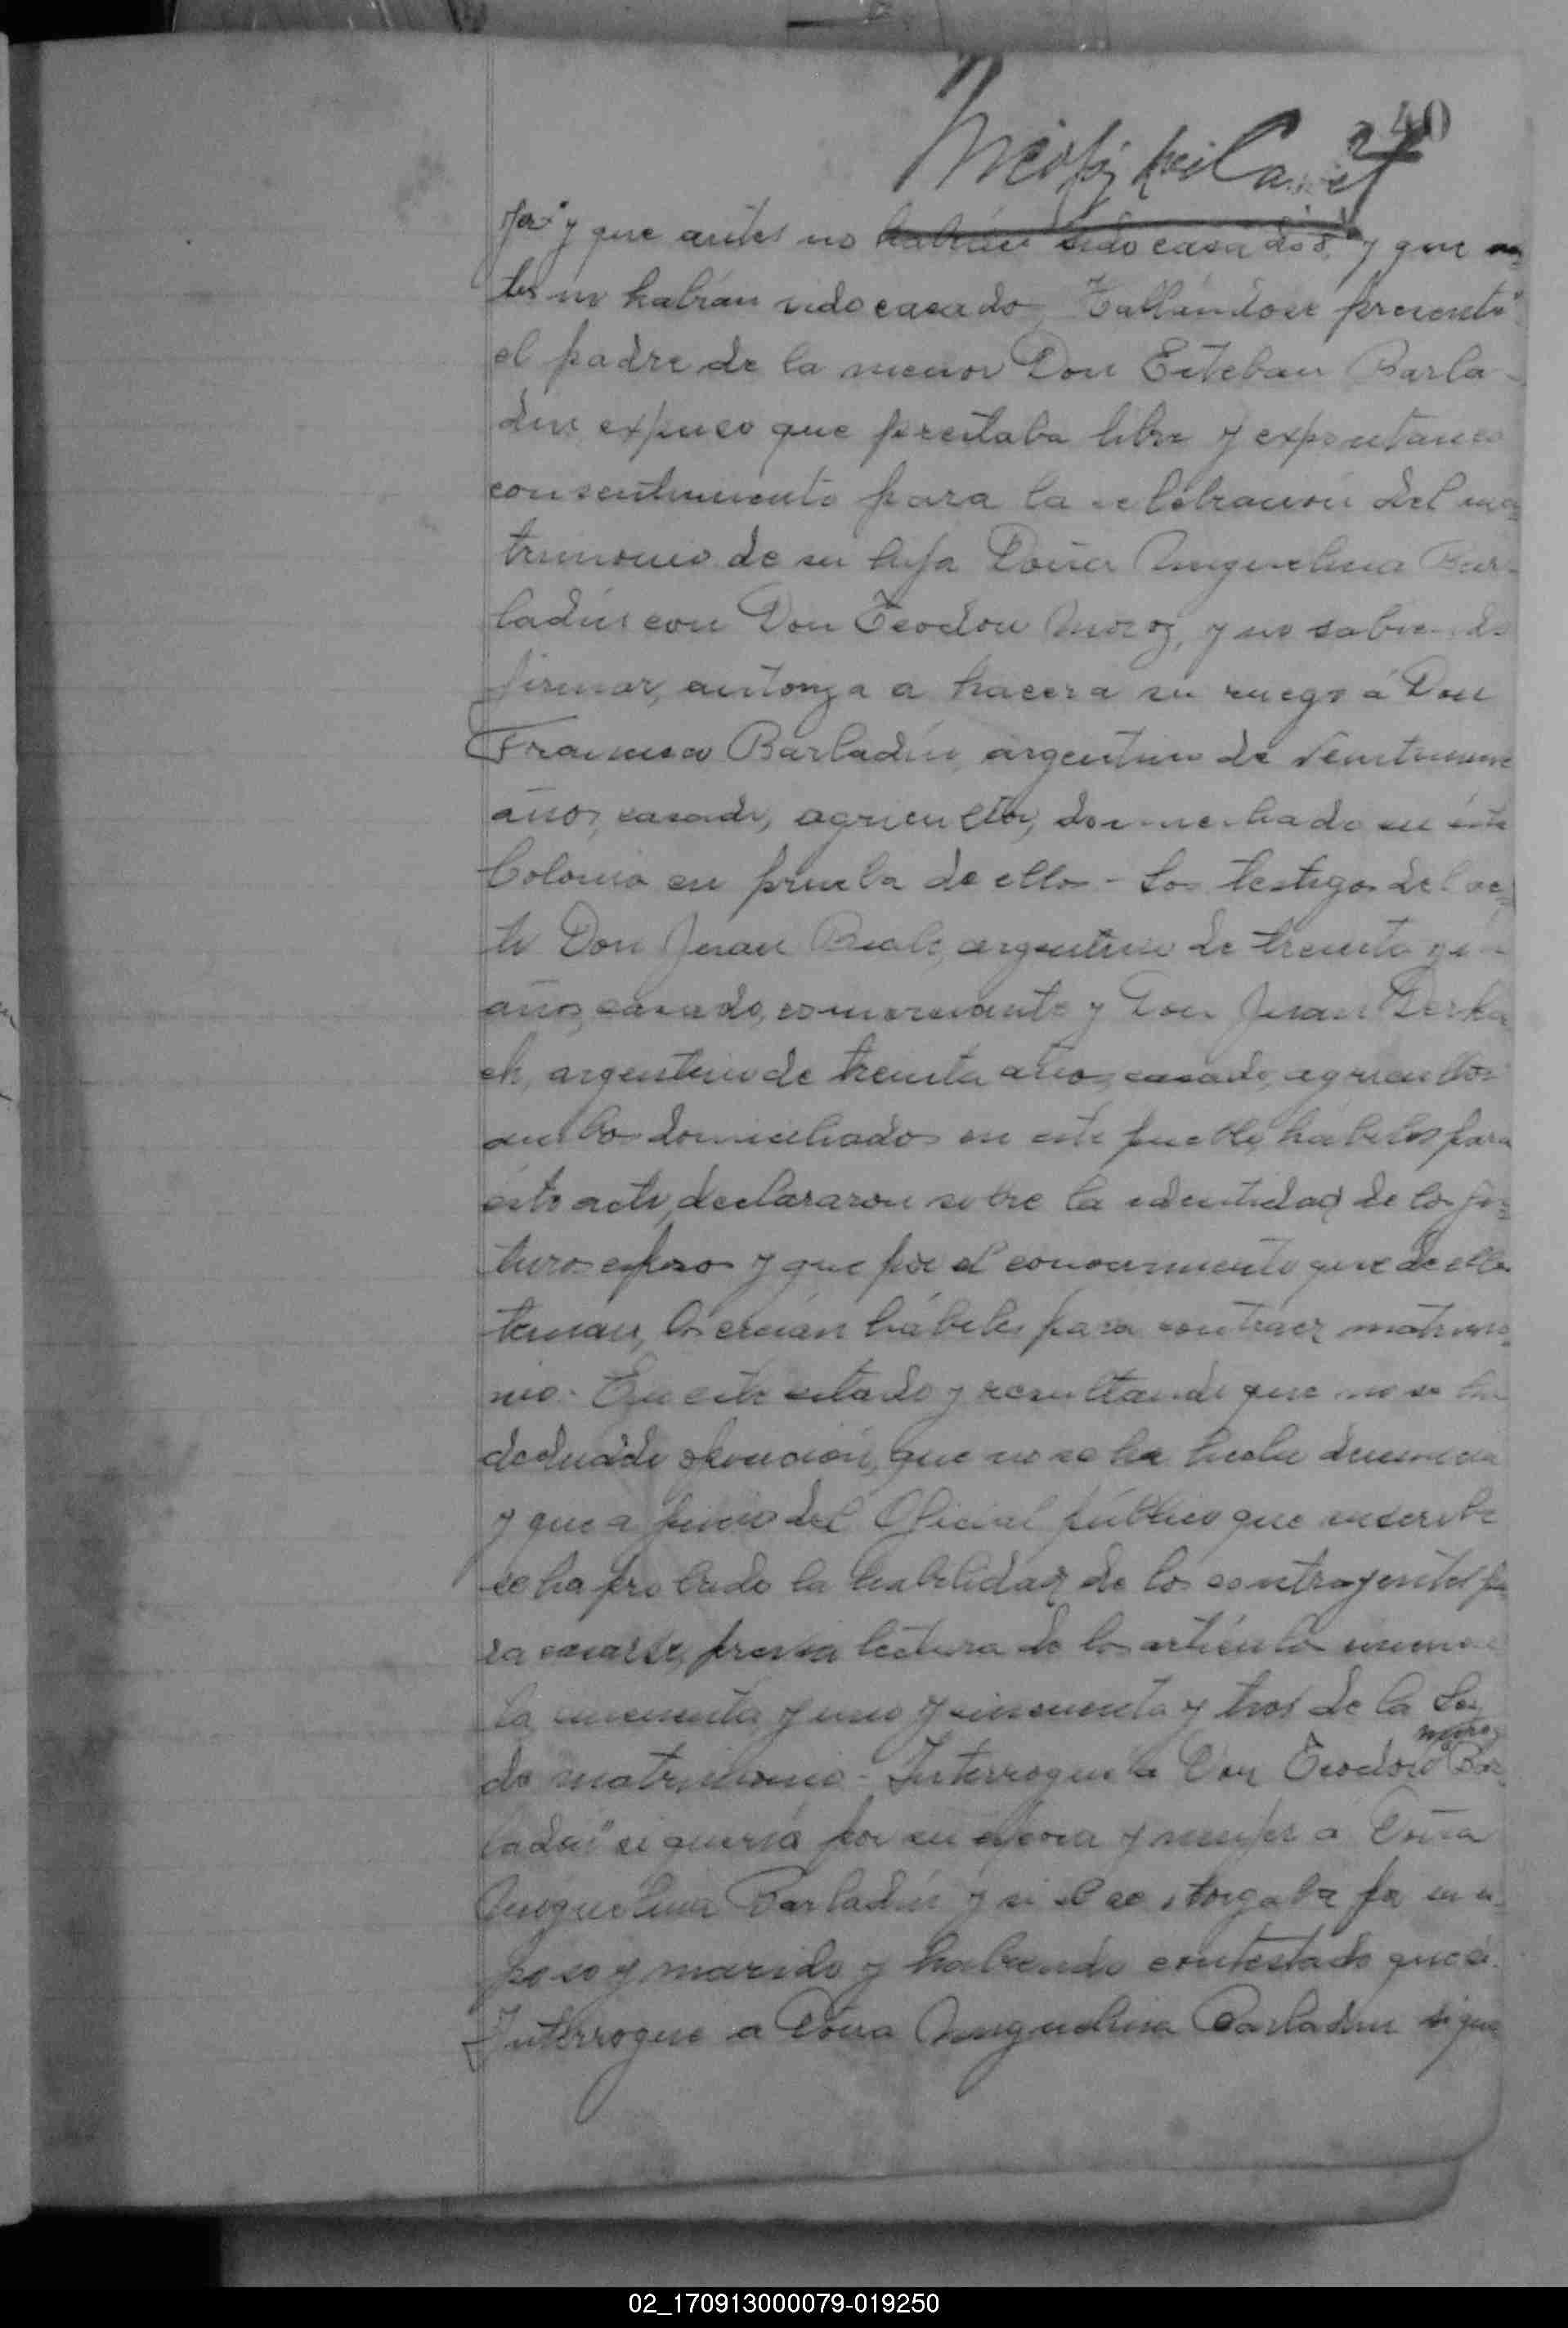 40
jer" y que antes no habían sido casados, y que an=
tes no habían sido casado, Hallándose presente"
el padre de la menor Don Esteban Barla-
din expuso que prestaba libre y expontaneo
consentimiento para la celebración del ma=
trimonio de su hija Doña Miguelina Bar-
ladin con Don Teodoro Moroz, y no sabiendo
firmar, autoriza a hacer a su ruego á Don
Francisco Barladin, argentino de veintinueve
años, casado, agricultor, domiciliado en ésta
Colonia en prueba de ello - Los testigos del ac=
to Don Juan argentino de treinta y
años, casado, comerciante y Don Juan Derka
ch, argentino de treinta años, casado, agricultor
ambos domiciliados en este pueblo, hábiles para
este acto, declararon sobre la identidad de los fu=
turos esposos y que por el conocimiento que de ellos
tenían, los creían hábiles para contraer matrimo=
nio. En este estado y resultando que no se ha
deducido oposición, que no se ha hecho denuncia
y que a juicio del Oficial público que suscribe
se ha probado la habilidad de los contrayentes pa
ra casarse, previa lectura de los artículos
cincuenta y uno y cincuenta y tres de la Ley
de matrimonio - Interrogue a Don Teodoro Moroz Bar
ladin" si quería por su esposa y mujer a Doña
Miguelina Barladin y si él se otorgaba por su es
poso y marido y habiendo contestado que si.
Interrogue a Doña Miguelina Barladin si que
02_170913000079-019250